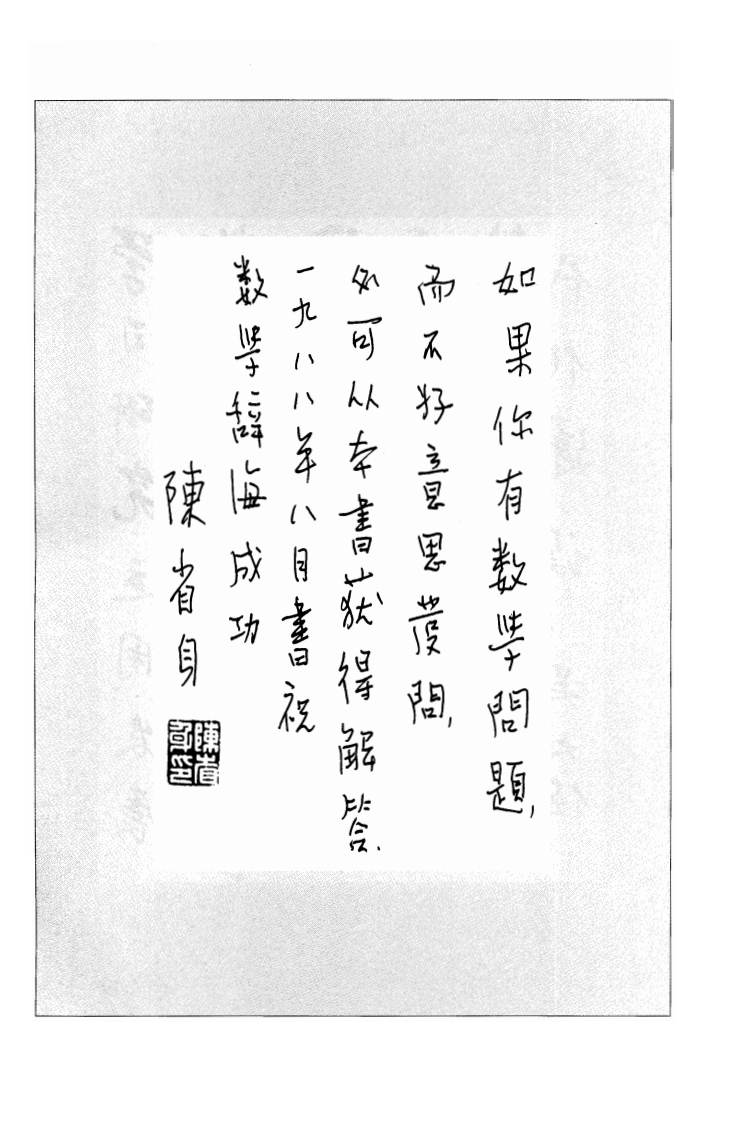 如果你有数學問題,
而不好意思發問,
必可从本書获得解答.
一九八八年八月書祝
数學辭海成功
陳省身
陳省身印